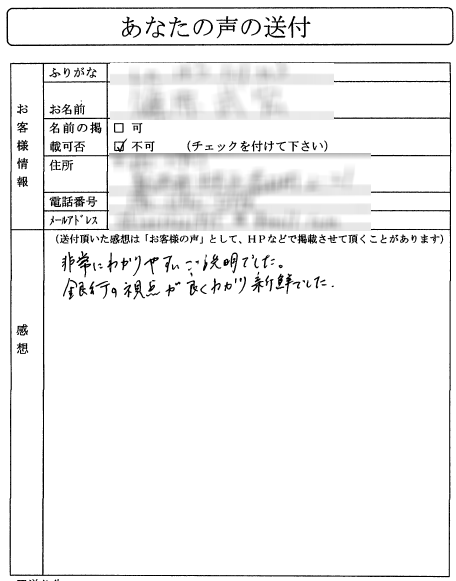 あなたの声の送付
お客様情報
ふりがな
お名前
名前の掲載可否
□ 可
☑ 不可 (チェックを付けて下さい)
住所
電話番号
メールアドレス
感想
(送付頂いた感想は「お客様の声」として、HPなどで掲載させて頂くことがあります)
非常にわかりやすいご説明でした。
銀行の視点が良くわかり新鮮でした.